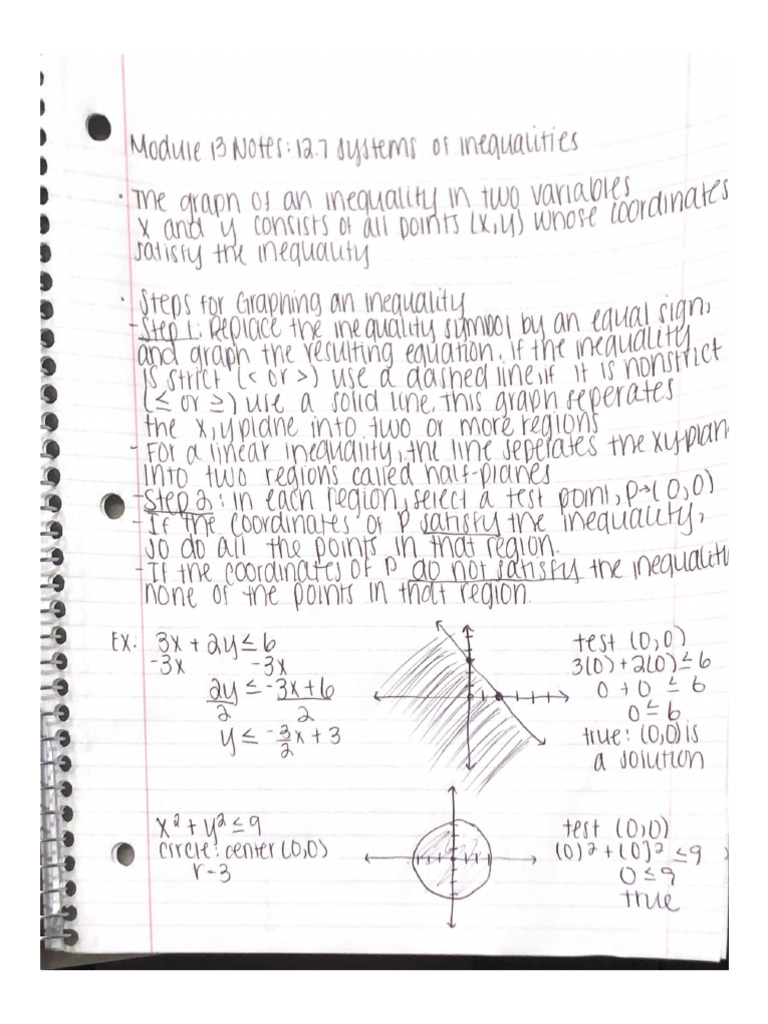 Module 13 Notes: 12.7 systems of inequalities
· The graph of an inequality in two variables
x and y consists of all points (x,y) whose coordinates
satisfy the inequality
· Steps for Graphing an inequality
- Step 1: Replace the inequality symbol by an equal sign,
and graph the resulting equation. if the inequality
is strict (< or >) use a dashed line, if it is nonstrict
(≤ or ≥) use a solid line. This graph seperates
the x,y plane into two or more regions
- For a linear inequality, the line seperates the xy-plan
into two regions called half-planes
- Step 2: in each region, select a test point, P→(0,0)
- If the coordinates of P satisfy the inequality,
so do all the points in that region.
- If the coordinates of P do not satisfy the inequalit
none of the points in that region.
EX: 3x + 2y ≤ 6
-3x -3x
2y ≤ -3x+6
2 2
y ≤ -3/2 x + 3
test (0,0)
3(0)+2(0) ≤ 6
0 + 0 ≤ 6
0 ≤ 6
true: (0,0) is
a solution
x² + y² ≤ 9
circle: center (0,0)
r=3
test (0,0)
(0)² + (0)² ≤ 9
0 ≤ 9
true